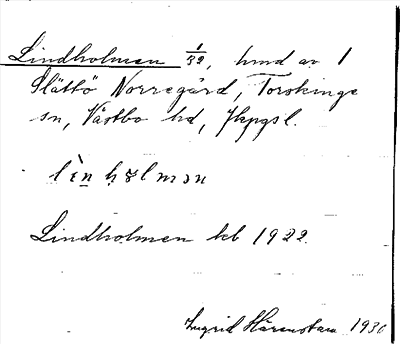 Lindholmen 1/32, hmd av 1
Slättö Norregård, Torskinge
sn, Västbo hd, Jkpgs l.
Lindholmen kbl 1922.
Ingrid Härenstam 1936